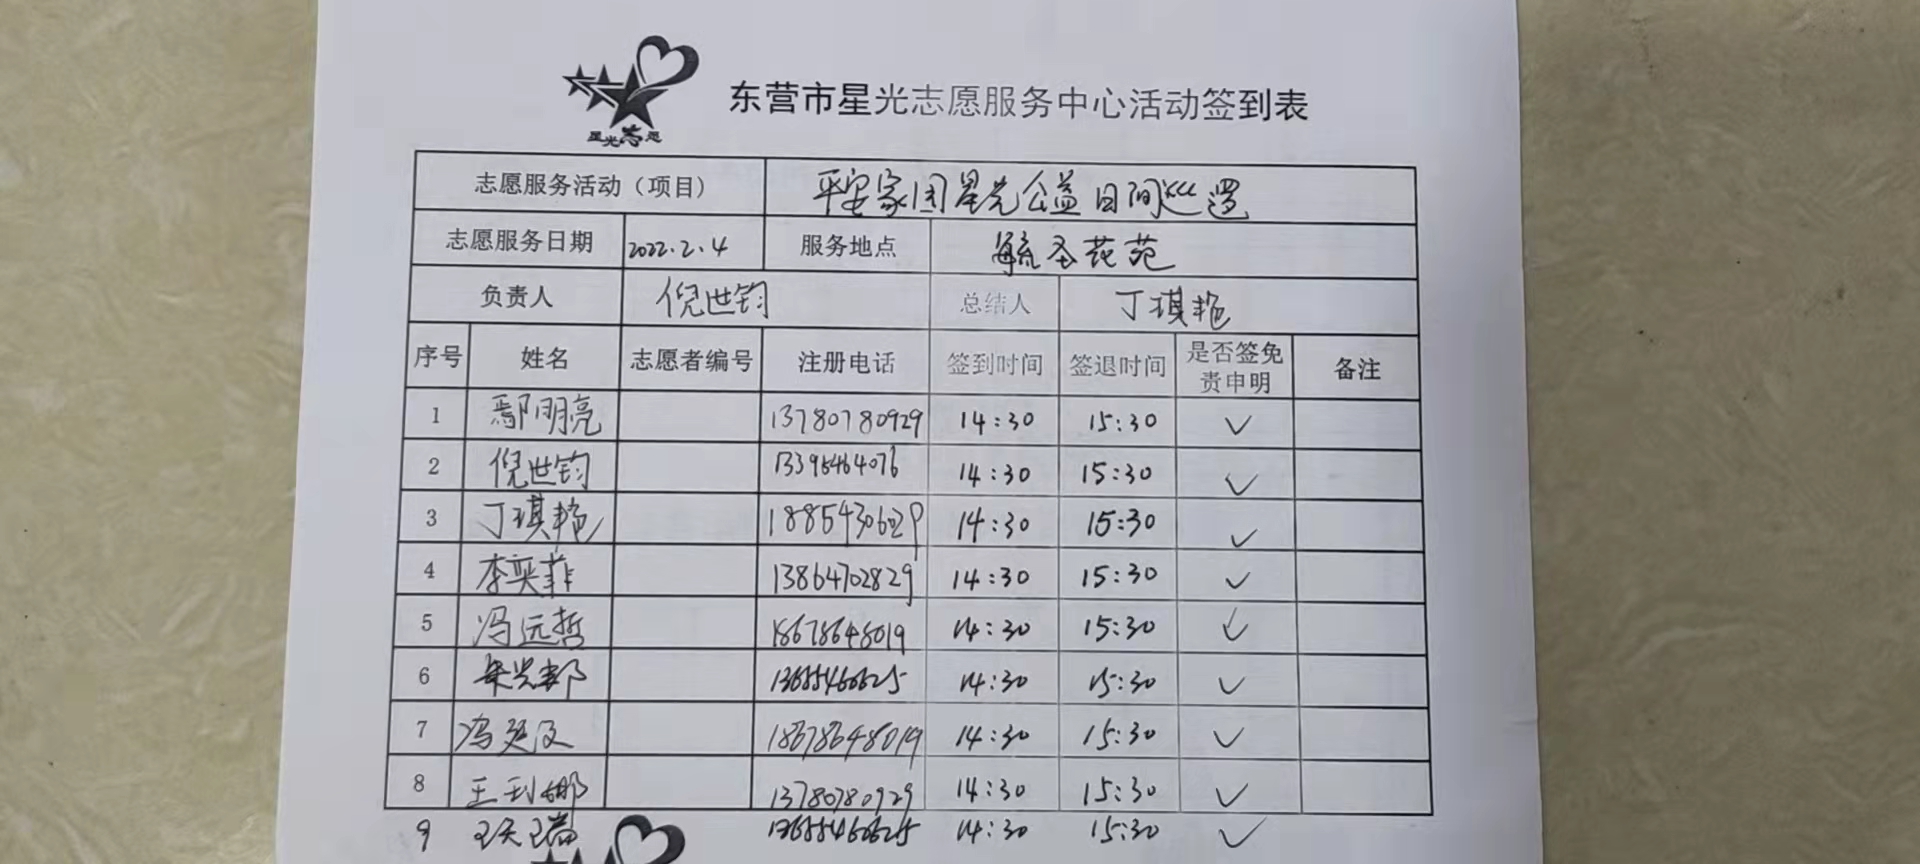 星光志愿
东营市星光志愿服务中心活动签到表
志愿服务活动（项目） 平安家园星光公益日间巡逻
志愿服务日期 2022.2.4 服务地点 毓圣花苑
负责人 倪世钧 总结人 丁琪艳
序号 姓名 志愿者编号 注册电话 签到时间 签退时间 是否签免责申明 备注
1 鄢明亮 13780780929 14:30 15:30 ✓
2 倪世钧 13395464076 14:30 15:30 ✓
3 丁琪艳 18854306029 14:30 15:30 ✓
4 李奕菲 13864702829 14:30 15:30 ✓
5 冯远哲 18678648019 14:30 15:30 ✓
6 13655460625 14:30 15:30 ✓
7 冯延文 18678648019 14:30 15:30 ✓
8 王利娜 13780780929 14:30 15:30 ✓
9 13655460625 14:30 15:30 ✓